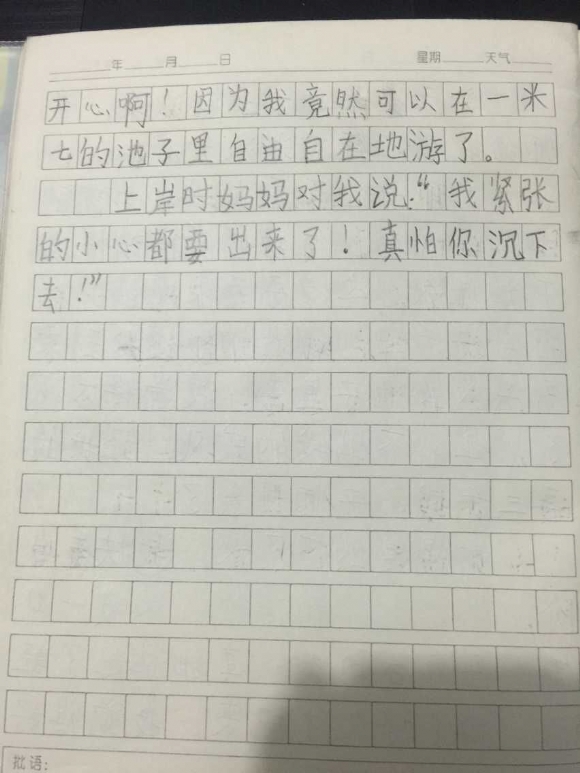 年 月 日 星期 天气
开心啊！因为我竟然可以在一米
七的池子里自由自在地游了。
上岸时妈妈对我说：“我紧张
的小心都要出来了！真怕你沉下
去！”
批语：